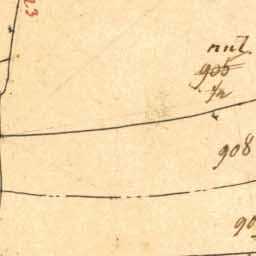 23
nul
905
1/2
908
90